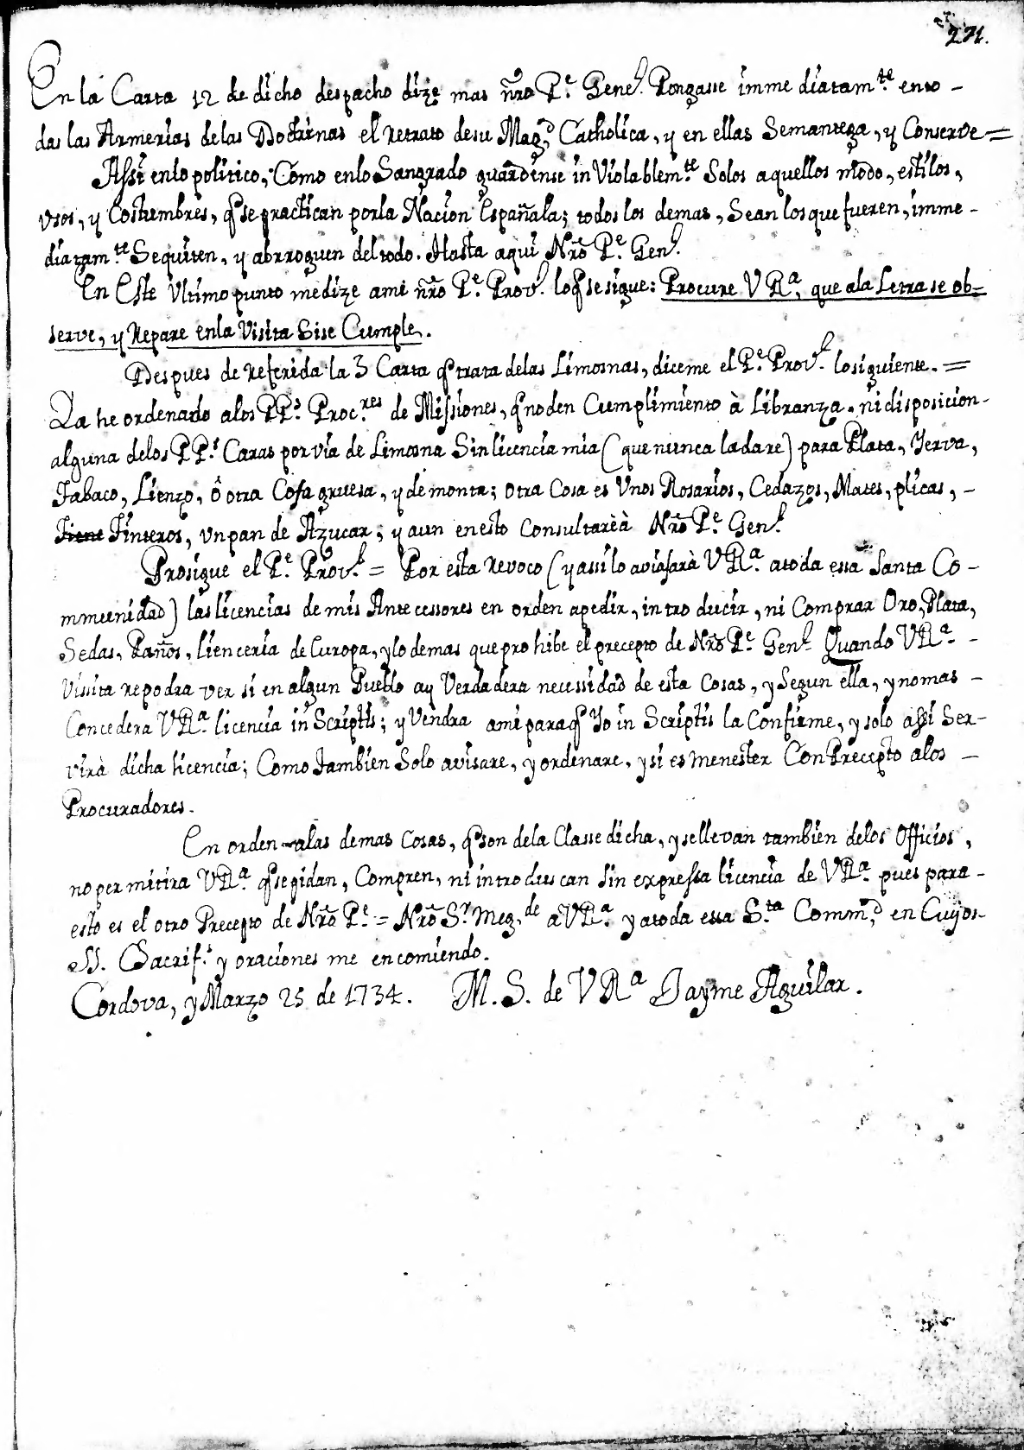 271.
En la Carta 12 de dicho despacho dize mas ñro Pe. Genel. Pongasse immediatamte. en to-
das las Armerias de las Doctrinas el retrato de su Magd. Catholica, y en ellas Semantega, y Conserve =
Assi enlo politico, Como enlo Sangrado guardense inViolablemte. Solos aquellos modo, estilos,
vsos, y Costumbres, q̃ se practican porla Nacion Españala; todos los demas, Sean los que fueren, imme-
diatamte. Sequiten, y abrroguen del todo. Hasta aqui Nr̃o Pe. Genl.
En Este Vltimo punto me dize ami ñro Pe. Provl. lo q̃ se sigue: Procure V Ra. que ala Letra se ob-
serve, y Repare enla Visita Sise Cumple.
Despues de referida la 3 Carta q̃ trata delas Limosnas, diceme el Pe. Provl. lo siguiente. =
Ya he ordenado alos PPs. Procres. de Missiones, q̃ no den Cumplimiento à Libranza, ni disposicion-
alguna delos PPs. Caras por via de Limosna Sin licencia mia (que nunca la dare) para Plata, Yerva,
Tabaco, Lienzo, ô otra Cosa gruesa, y de monta; otra Cosa es Vnos Rosarios, Cedazos, Mates, plicas, -
Tiene Tinteros, vn pan de Azucar; y aun en esto Consultarèà Nr̃o Pe. Genl.
Prosigue el Pe. Provl. = Por esta revoco (y assi lo avisarà V Ra. atoda essa Santa Co-
mmunidad) las licencias de mis Antecessores en orden apedir, introducir, ni Comprar Oro, Plata,
Sedas, Paños, liencería de Europa, y lo demas que prohibe el precepto de Nr̃o Pe. Genl. Quando V Ra. -
Vissita repodra ver si en algun Pueblo ay Verdadera necessidad de esta Cosas, y Segun ella, y no mas -
Concedera V Ra. licencia in Scriptis; y Vendra ami para q̃ Yo in Scriptis la Confirme, y solo assi Ser-
virà dicha licencia; Como tambien Solo avisare, y ordenare, y si es menester Con Precepto alos -
Procuradores.
En orden alas demas Cosas, q̃ son dela Classe dicha, y se llevan tambien delos Officios,
no permitira V Ra. q̃ se pidan, Compren, ni introduscan Sin expressa licencia de V Ra. pues para -
esto es el otro Precepto de Nr̃o Pe. = Nr̃o Sr. meg.de a V Ra. y atoda essa Sta. Commd. en Cuyos-
SS. Sacrifs. y oraciones me encomiendo.
Cordova, y Marzo 25 de 1734. M. S. de V Ra Jayme Aguilar.